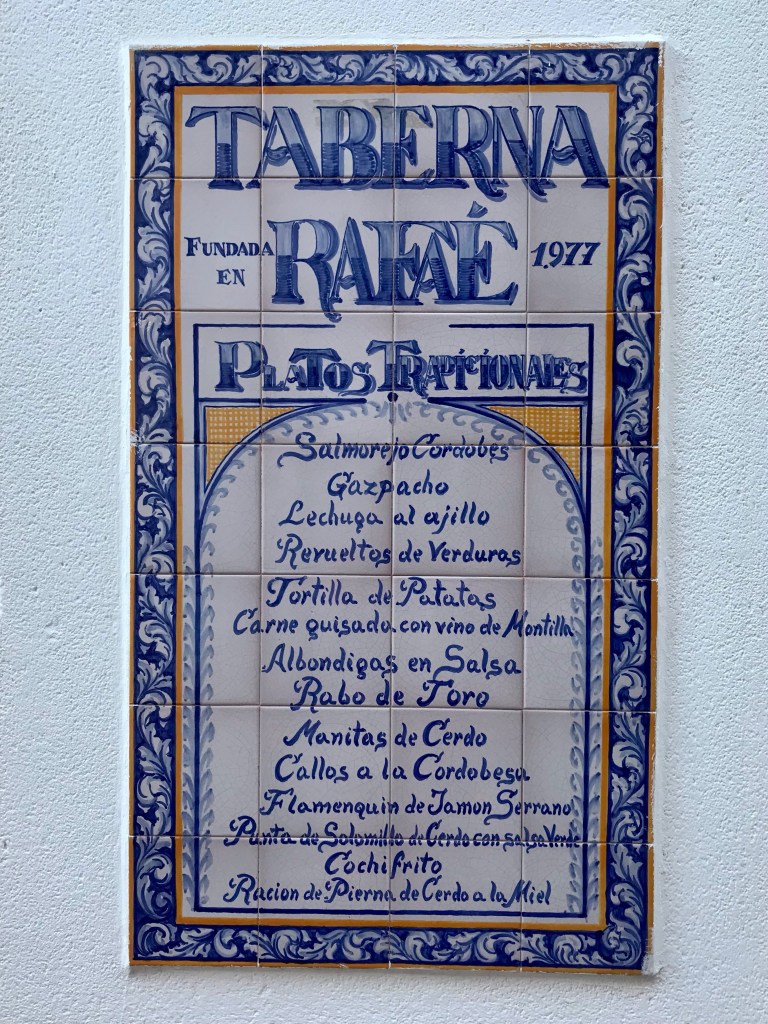 TABERNA
RAFAÉ
FUNDADA EN 1.977
PLATOS TRADICIONALES
Salmorejo Cordobes
Gazpacho
Lechuga al ajillo
Revueltos de Verduras
Tortilla de Patatas
Carne guisada con vino de Montilla
Albondigas en Salsa
Rabo de Toro
Manitas de Cerdo
Callos a la Cordobesa
Flamenquin de Jamon Serrano
Punta de Solomillo de Cerdo con salsa Verde
Cochifrito
Racion de Pierna de Cerdo a la Miel